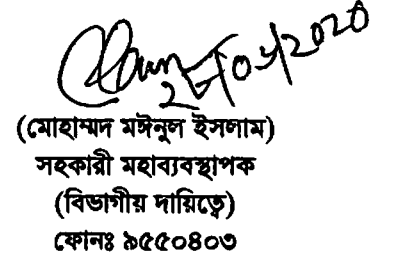 (মোহাম্মদ মঈনুল ইসলাম)
সহকারী মহাব্যবস্থাপক
(বিভাগীয় দায়িত্বে)
ফোনঃ ৯৫৫০৪০৩